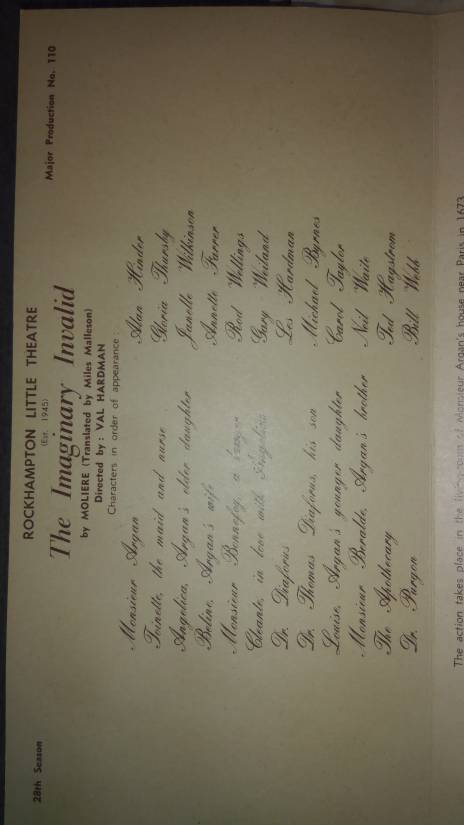 28th Season
Major Production No. 110
ROCKHAMPTON LITTLE THEATRE
(Est. 1945)
The Imaginary Invalid
by MOLIERE (Translated by Miles Malleson)
Directed by: VAL HARDMAN
Characters in order of appearance:
Monsieur Argan Alan Hinder
Toinette, the maid and nurse Gloria Thursby
Angelica, Argan's elder daughter Janelle Wilkinson
Beline, Argan's wife Annette Farrer
Monsieur Bonnefoy, a lawyer Rod Wellings
Cleante, in love with Angelica Gary Weiland
Dr. Diaforus Les Hardman
Dr. Thomas Diaforus, his son Michael Byrnes
Louise, Argan's younger daughter Carol Taylor
Monsieur Beralde, Argan's brother Neil Waite
The Apothecary Ted Hagstrom
Dr. Purgon Bill Webb
The action takes place in the of Monsieur Argan's house near Paris in 1673